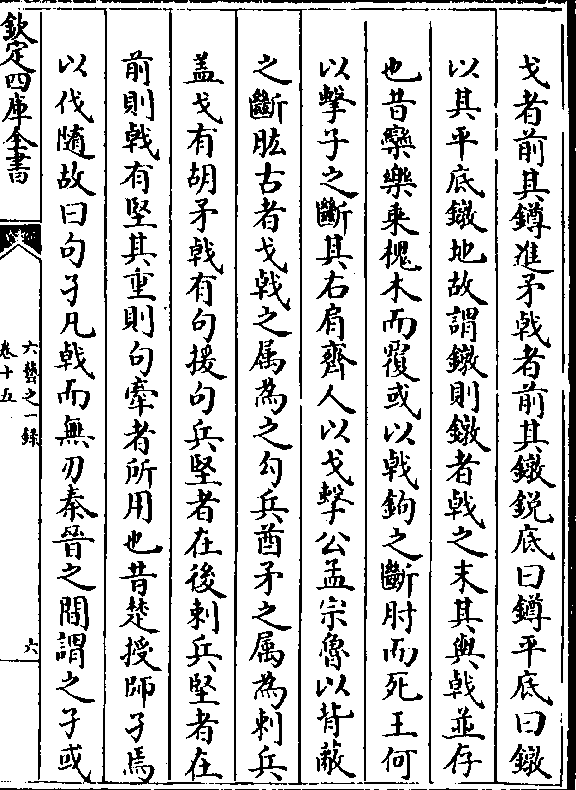 戈者前其鐏進矛戟者前其鐓鋭底曰鐏平底曰鐓
以其平底鐓地故謂鐓則鐓者戟之末其與戟並存
也昔欒樂乗槐木而覆或以戟鉤之斷肘而死王何
以擊子之斷其右肩齊人以戈擊公孟宗魯以背蔽
之斷肱古者戈戟之属為之勾兵酋矛之属為刺兵
盖戈有胡矛戟有句援句兵堅者在後刺兵堅者在
前則戟有堅其重則句牽者所用也昔楚授師孑焉
以伐隨故曰句孑凡戟而無刃秦晉之間謂之孑或
欽定四庫全書
六藝之一録
卷十五
六